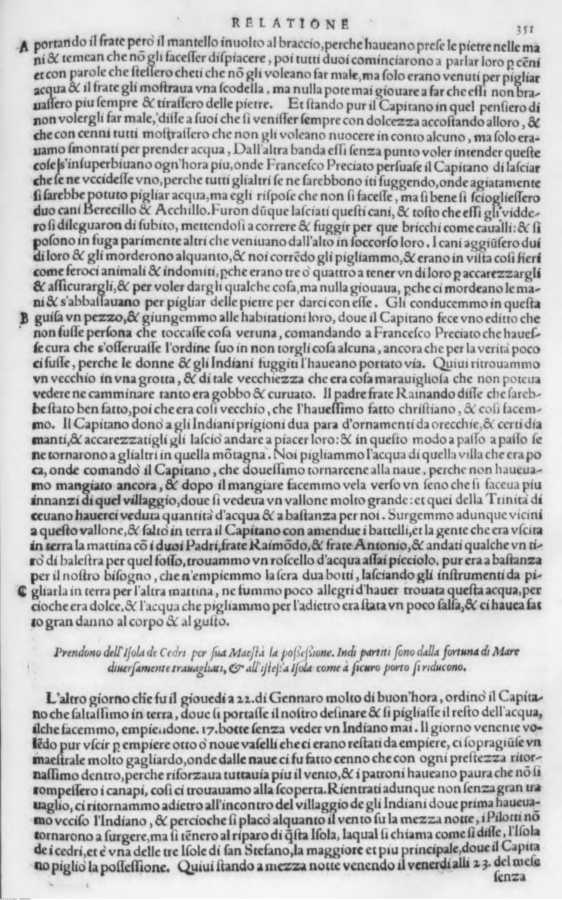 RELATIONE
351
A portando il frate però il mantello inuolto al braccio, perche haueano prese le pietre nelle ma
ni & temean che nõ gli facesser dispiacere, poi tutti duoi cominciarono a parlar loro p cẽni
et con parole che stessero cheti che nõ gli voleano far male, ma solo erano venuti per pigliar
acqua & il frate gli mostraua vna scodella, ma nulla pote mai giouare a far che essi non bra-
uassero piu sempre & tirassero delle pietre. Et stando pur il Capitano in quel pensiero di
non volergli far male, disse a suoi che si venisser sempre con dolcezza accostando alloro, &
che con cenni tutti mostrassero che non gli voleano nuocere in conto alcuno, ma solo era-
uamo smontati per prender acqua, Dall'altra banda essi senza punto voler intender queste
cose s'insuperbiuano ogn'hora piu, onde Francesco Preciato persuase il Capitano di lasciar
che se ne vccidesse vno, perche tutti glialtri se ne sarebbono iti fuggendo, onde agiatamente
si sarebbe potuto pigliar acqua, ma egli rispose che non si facesse, ma si bene si sciogliessero
duo cani Berecillo & Acchillo. Furon dũque lasciati questi cani, & tosto che essi gli vidde-
ro si dileguaron di subito, mettendosi a correre & fuggir per que bricchi come caualli: & si
posono in fuga parimente altri che veniuano dall'alto in soccorso loro. I cani aggiũsero dui
di loro & gli morderono alquanto, & noi corrẽdo gli pigliammo, & erano in vista cosi fieri
come feroci animali & indomiti, pche erano tre o quattro a tener vn di loro p accarezzargli
& assicurargli, & per voler dargli qualche cosa, ma nulla giouaua, pche ci mordeano le ma-
ni & s'abbassauano per pigliar delle pietre per darci con esse. Gli conducemmo in questa
B guisa vn pezzo, & giungemmo alle habitationi loro, doue il Capitano fece vno editto che
non fusse persona che toccasse cosa veruna, comandando a Francesco Preciato che haues-
se cura che s'osseruasse l'ordine suo in non torgli cosa alcuna, ancora che per la verità poco
ci fusse, perche le donne & gli Indiani fuggiti l'haueano portato via. Quiui ritrouammo
vn vecchio in vna grotta, & di tale vecchiezza che era cosa marauigliosa che non poteua
vedere ne camminare tanto era gobbo & curuato. Il padre frate Rainando disse che sareb-
be stato ben fatto, poi che era cosi vecchio, che l'hauessimo fatto christiano, & cosi facem-
mo. Il Capitano donò a gli Indiani prigioni dua para d'ornamenti da orecchie, & certi dia
manti, & accarezzatigli gli lasciò andare a piacer loro: & in questo modo a passo a passo se
ne tornarono a glialtri in quella mõtagna. Noi pigliammo l'acqua di quella villa che era po
ca, onde comandò il Capitano, che douessimo tornarcene alla naue, perche non haueua-
mo mangiato ancora, & dopo il mangiare facemmo vela verso vn seno che si faceua piu
innanzi di quel villaggio, doue si vedeua vn vallone molto grande: et quei della Trinità di
ceuano hauerci veduta quantità d'acqua & a bastanza per noi. Surgemmo adunque vicini
a questo vallone, & saltò in terra il Capitano con amendue i battelli, et la gente che era vscita
in terra la mattina cõ i duoi Padri, frate Raimõdo, & frate Antonio, & andati qualche vn ti-
ro di balestra per quel fosso, trouammo vn roscello d'acqua assai picciolo, pur era a bastanza
per il nostro bisogno, che n'empiemmo la sera dua botti, lasciando gli instrumenti da pi-
C gliarla in terra per l'altra mattina, ne fummo poco allegri d'hauer trouata questa acqua, per
cioche era dolce, & l'acqua che pigliammo per l'adietro era stata vn poco salsa, & ci hauea fat
to gran danno al corpo & al gusto.
Prendono dell'Isola de Cedri per sua Maestà la possessione. Indi partiti sono dalla fortuna di Mare
diuersamente trauagliati, & all'istessa Isola come à sicuro porto si riducono.
L'altro giorno che fu il giouedi a 22. di Gennaro molto di buon'hora, ordinò il Capita-
no che saltassimo in terra, doue si portasse il nostro desinare & si pigliasse il resto dell'acqua,
ilche facemmo, empiendone. 17. botte senza veder vn Indiano mai. Il giorno venente vo-
lẽdo pur vscir p empiere otto o noue vaselli che ci erano restati da empiere, ci sopragiũse vn
maestrale molto gagliardo, onde dalle naue ci fu fatto cenno che con ogni prestezza ritor-
nassimo dentro, perche rinforzaua tuttauia piu il vento, & i patroni haueano paura che nõ si
rompessero i canapi, cosi ci trouauamo alla scoperta. Rientrati adunque non senza gran tra
uaglio, ci ritornammo adietro all'incontro del villaggio de gli Indiani doue prima haueua-
mo vcciso l'Indiano, & percioche si placò alquanto il vento su la mezza notte, i Piloti nõ
tornarono a surgere, ma si tẽnero al riparo di q̃sta Isola, laqual si chiama come si disse, l'Isola
de i cedri, et è vna delle tre Isole di san Stefano, la maggiore et piu principale, doue il Capita
no pigliò la possessione. Quiui stando a mezza notte venendo il venerdi alli 23. del mese
senza